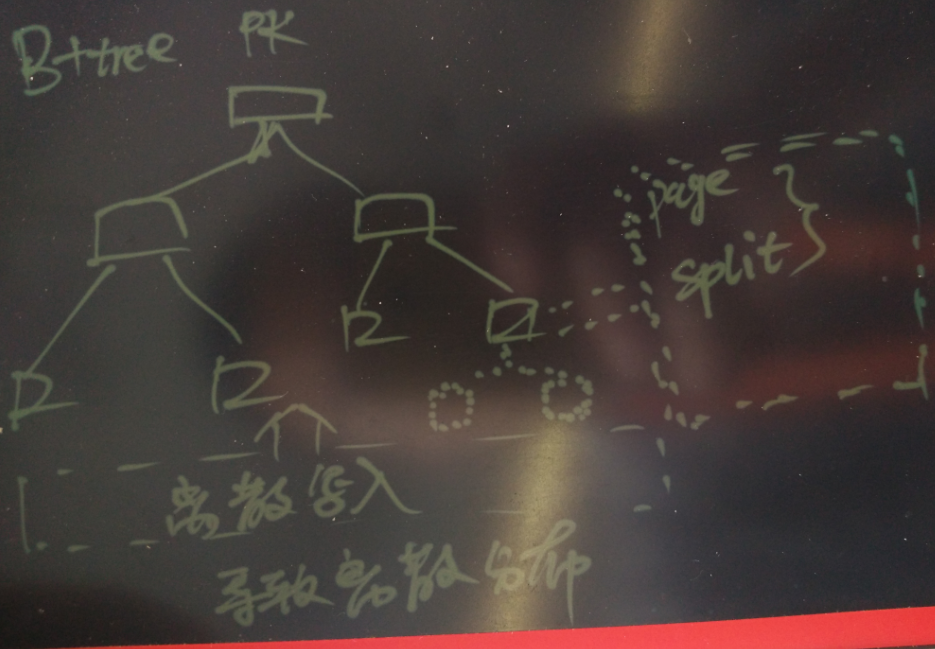 B+tree PK
page
split
离散写入
导致离散分布